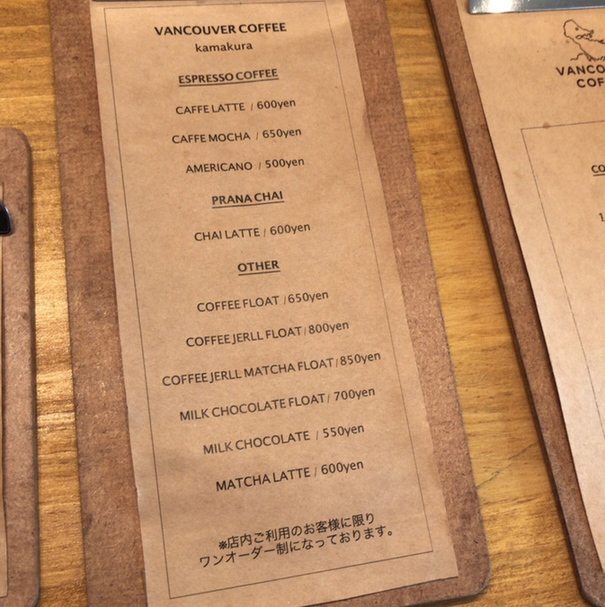 VANCOUVER COFFEE
kamakura
ESPRESSO COFFEE
CAFFE LATTE / 600yen
CAFFE MOCHA / 650yen
AMERICANO / 500yen
PRANA CHAI
CHAI LATTE / 600yen
OTHER
COFFEE FLOAT /650yen
COFFEE JERLL FLOAT/800yen
COFFEE JERLL MATCHA FLOAT/850yen
MILK CHOCOLATE FLOAT/ 700yen
MILK CHOCOLATE / 550yen
MATCHA LATTE / 600yen
※店内ご利用のお客様に限り
ワンオーダー制になっております。
VANCO
COF
CO